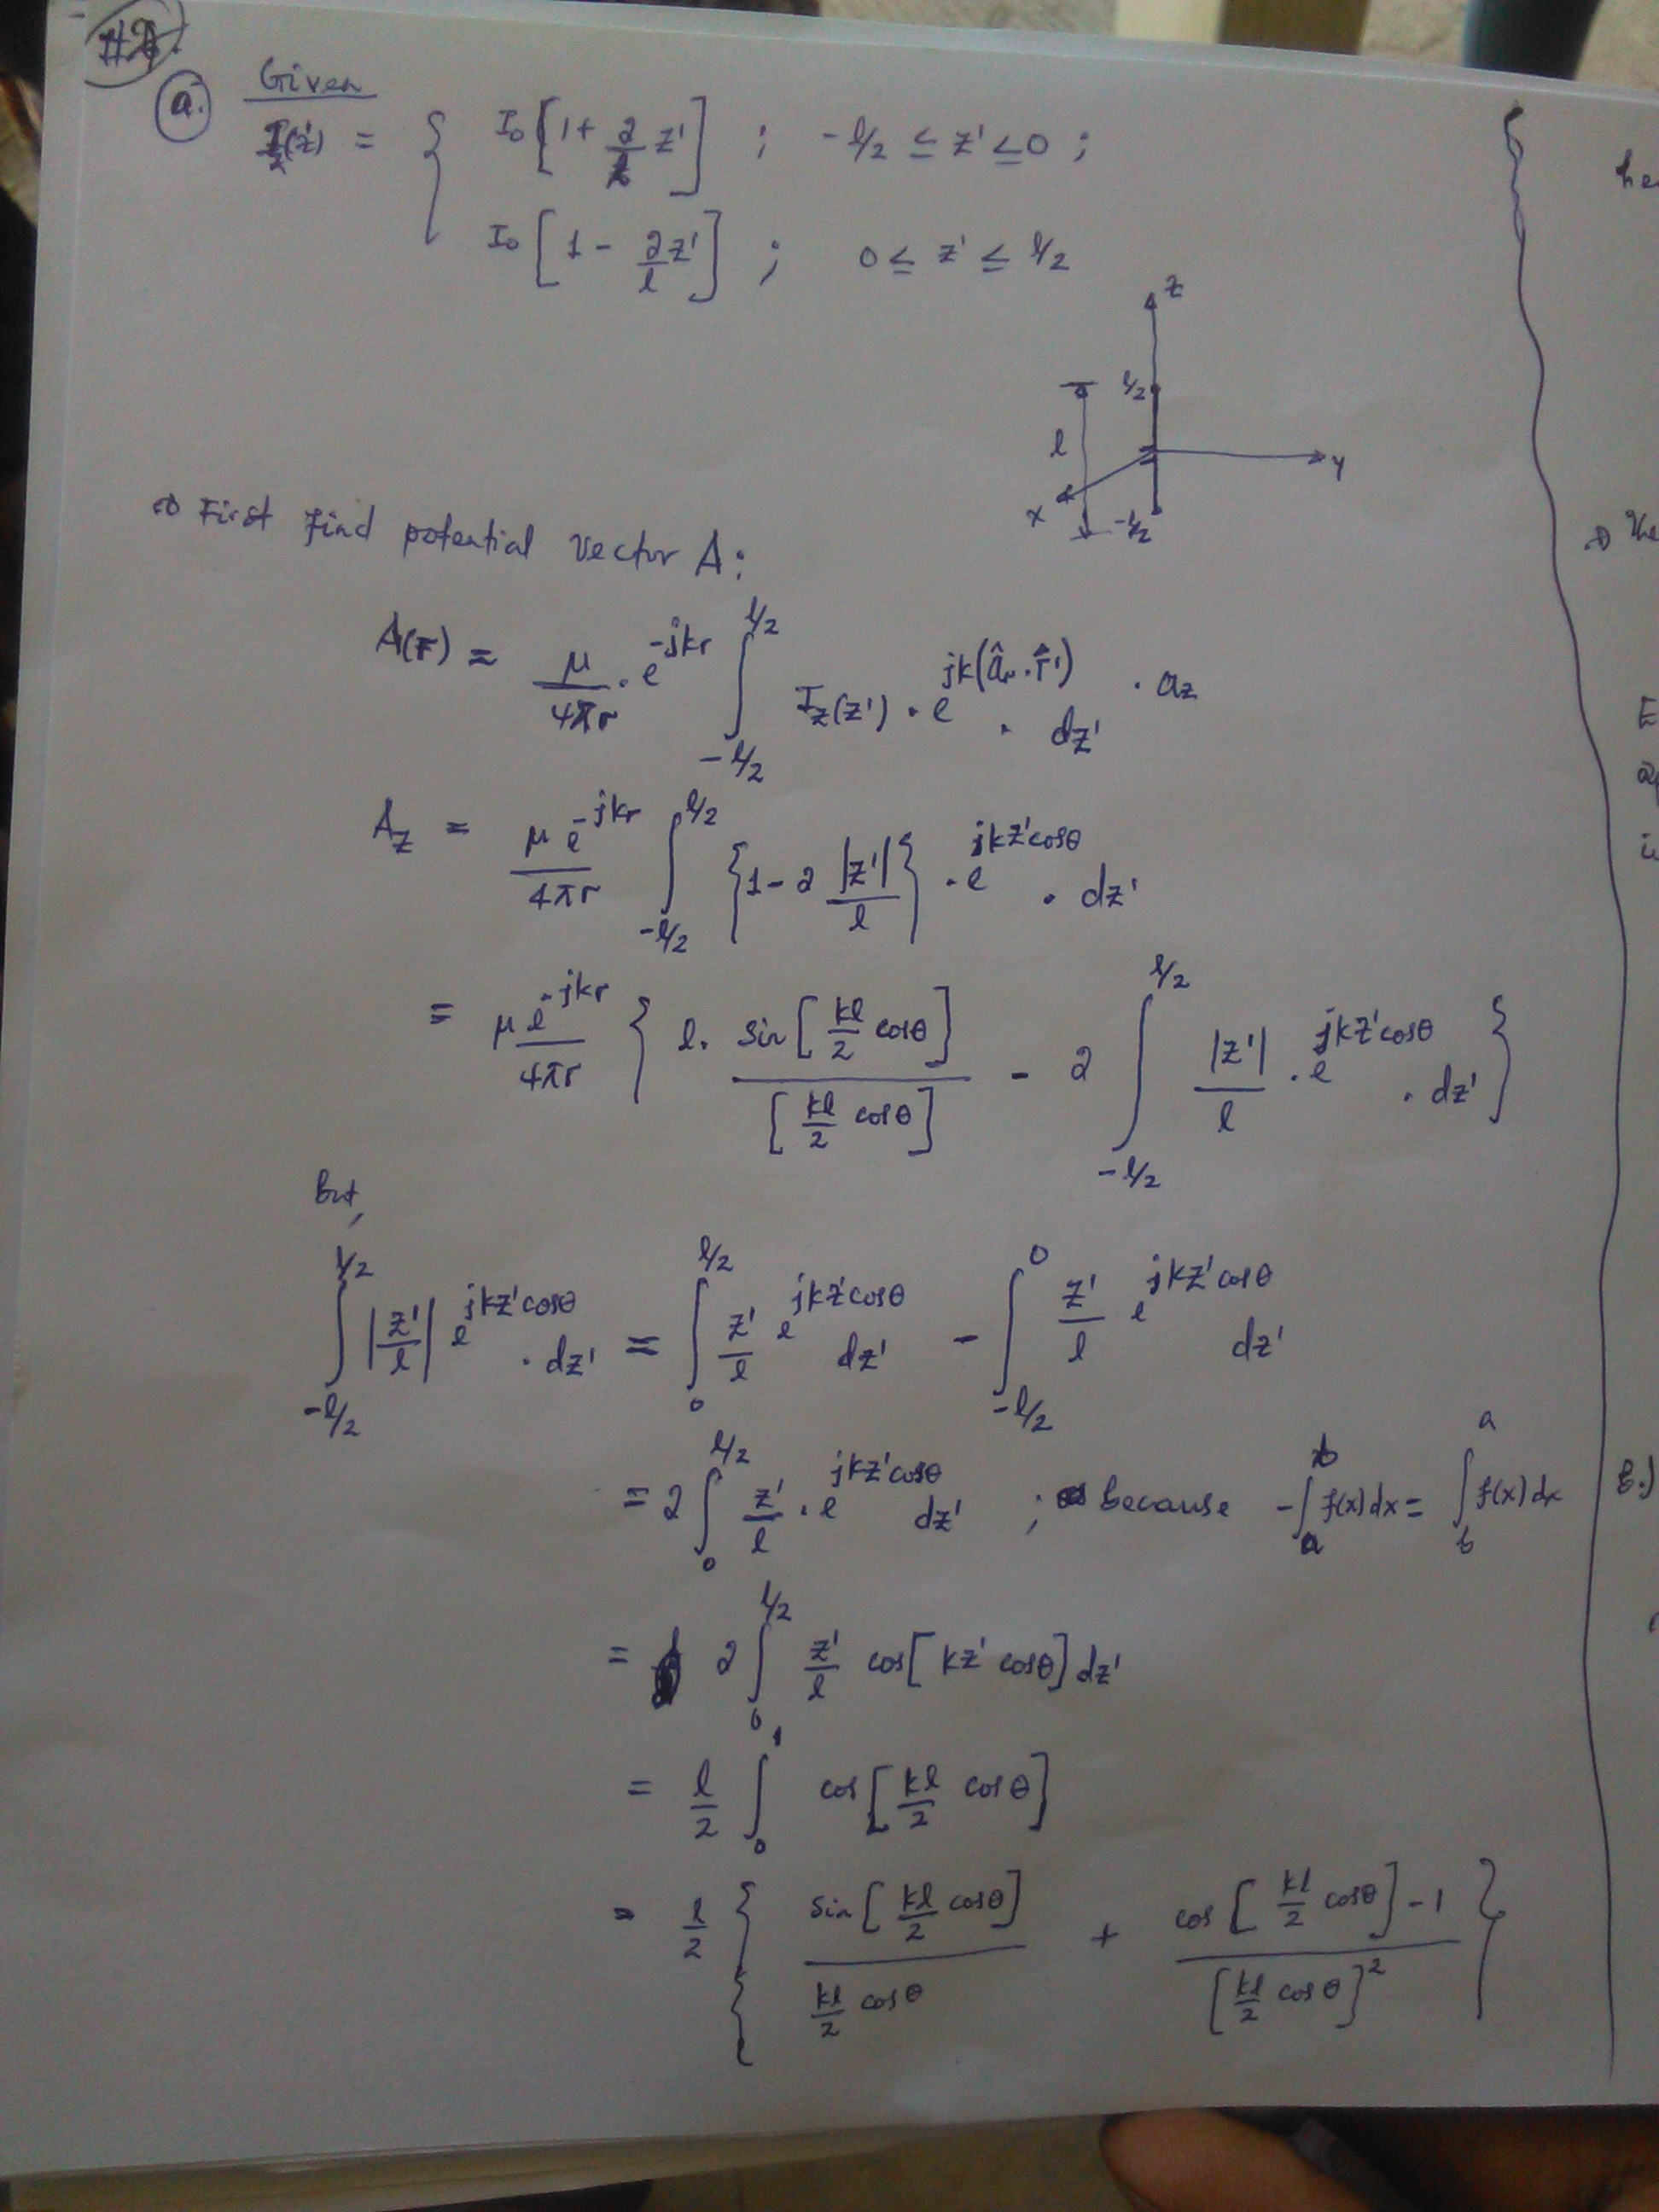 #2.
a. Given
I_z(z') = { I₀[1 + 2/l z'] ; -l/2 ≤ z' ≤ 0 ;
I₀[1 - 2/l z'] ; 0 ≤ z' ≤ l/2
z
l/2
l
y
x
-l/2
⇒ First find potential vector A:
A(r̄) = μ/4πr · e^{-jkr} ∫_{-l/2}^{l/2} I_z(z') · e^{jk(â_r · r̄')} · dz' · a_z
A_z = μe^{-jkr}/4πr ∫_{-l/2}^{l/2} {1 - 2 |z'|/l} · e^{jkz'cosθ} · dz'
= μe^{-jkr}/4πr { l · sin[kl/2 cosθ]/[kl/2 cosθ] - 2 ∫_{-l/2}^{l/2} |z'|/l · e^{jkz'cosθ} · dz' }
But,
∫_{-l/2}^{l/2} |z'/l| e^{jkz'cosθ} · dz' = ∫_0^{l/2} z'/l e^{jkz'cosθ} dz' - ∫_{-l/2}^0 z'/l e^{jkz'cosθ} dz'
= 2 ∫_0^{l/2} z'/l · e^{jkz'cosθ} dz' ; because -∫_a^b f(x)dx = ∫_b^a f(x)dx
= 2 ∫_0^{l/2} z'/l cos[kz' cosθ] dz'
= l/2 ∫_0^1 cos[kl/2 cosθ]
= l/2 { sin[kl/2 cosθ] / kl/2 cosθ + cos[kl/2 cosθ] - 1 / [kl/2 cosθ]² }
b.)